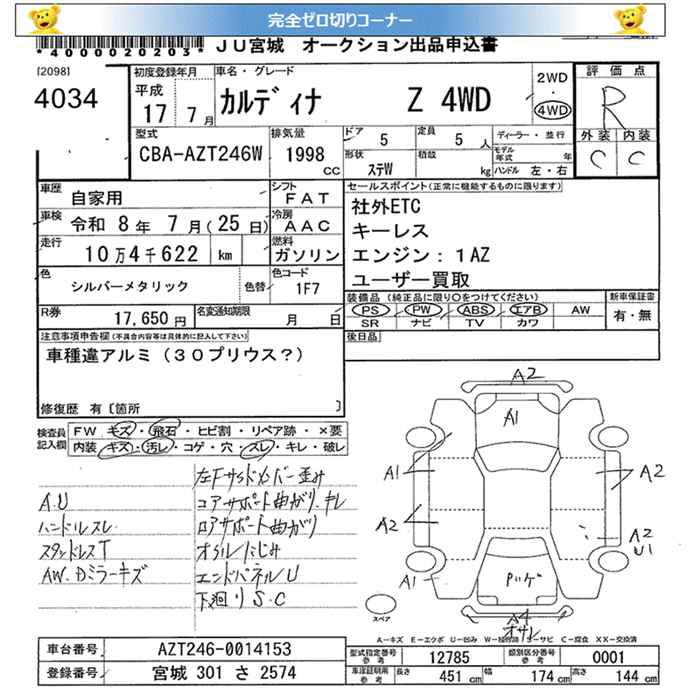 完全ゼロ切りコーナー
*40000020203*
JU宮城 オークション出品申込書
[2098]
4034
初度登録年月 平成 17 7月
車名・グレード カルディナ Z 4WD
2WD 4WD
評価点 R
外装 内装
C C
型式 CBA-AZT246W
排気量 1998 CC
ドア 5
定員 5人
形状 ステW
積載 kg
ディーラー・並行
モデル年式 年
ハンドル 左・右
車歴 自家用
シフト FAT
車検 令和 8年 7月(25日)
冷房 AAC
走行 10万4千622 km
燃料 ガソリン
色 シルバーメタリック 色替
色コード 1F7
R券 17,650円
名変通知期限 月 日
セールスポイント(正常に機能するものに限ります)
社外ETC
キーレス
エンジン:1AZ
ユーザー買取
装備品(純正品に限り○をつけてください)
PS PW ABS エアB AW
SR ナビ TV カワ
新車保証書 有・無
後日品
注意事項申告欄(不具合内容等は具体的に記入して下さい)
車種違アルミ(30プリウス?)
修復歴 有[箇所 ]
検査員記入欄
FW キズ・飛石・ヒビ割・リペア跡・×要
内装 キズ・汚レ・コゲ・穴・スレ・キレ・破レ
A.U
ハンドルスレ
スタッドレスT
AW.Dミラーキズ
左Fサイドカバー歪み
コアサポート曲がり.キレ
ロアサポート曲がり
オイルにじみ
エンドパネルU
下廻りS.C
A2
A1
A1
A2
A2
A2
U1
A1
A4
スペア
A-キズ E-エクボ U-凹み W-補修跡 S-サビ C-腐食 XX-交換済
車台番号 AZT246-0014153
登録番号 宮城 301 さ 2574
型式指定番号 参考 12785
類別区分番号 参考 0001
車庫証明用 参考 長さ 451cm 幅 174cm 高さ 144cm